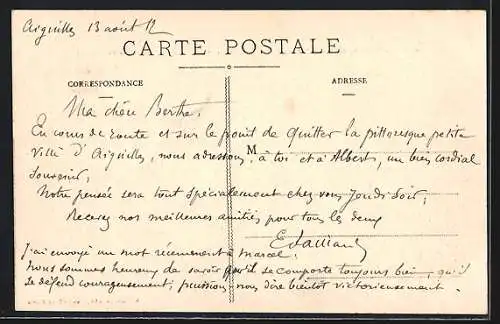 Aiguilles 13 août 12
CARTE POSTALE
CORRESPONDANCE
ADRESSE
Ma chère Berthe,
En cours de route et sur le point de quitter la pittoresque petite
M
ville d'Aiguilles, nous adressons, à toi et à Albert, un bien cordial
souvenir,
Notre pensée sera tout spécialement chez vous Jeudi soir,
Recevez nos meilleures amitiés pour tous les deux
J'ai envoyé un mot récemment à Marcel.
Nous sommes heureux de savoir qu'il se comporte toujours bien, qu'il
se défend courageusement, puissions nous dire bientôt victorieusement.